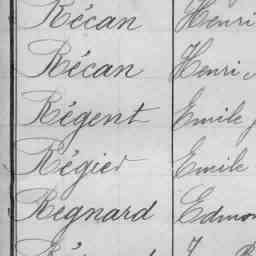 Récan Henri
Récan Henri
Régent Emile
Régier Emile
Regnard Edmo